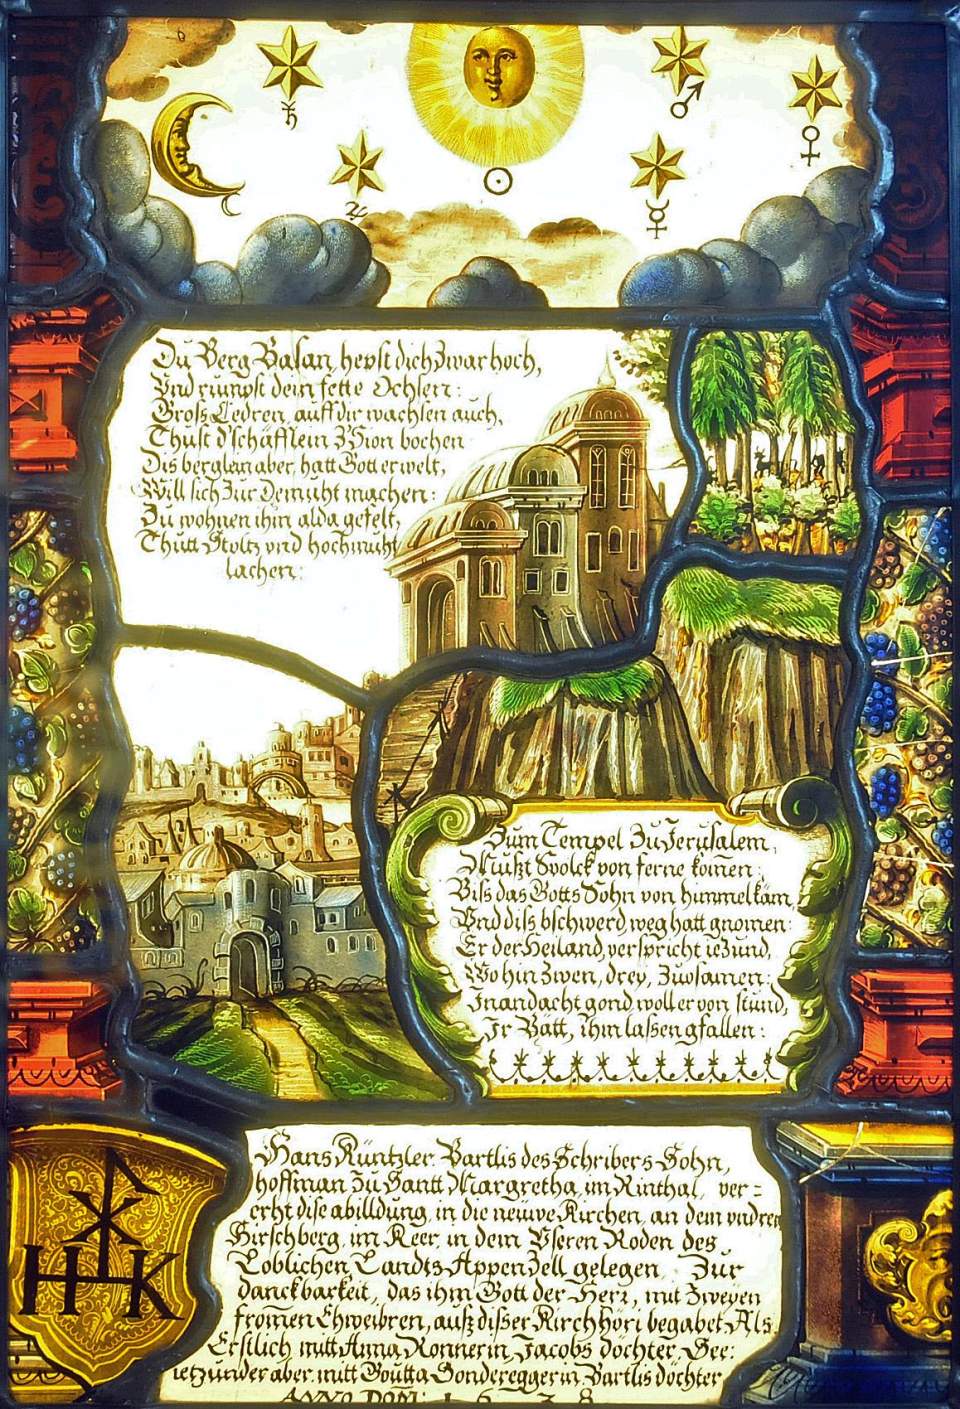 ♄
♂
♀
☉
♃
☿
☾
Du Berg Basan, hepst dich Zwar hoch,
Vnd riumpst dein fette Ochsen:
Gross Cedren, auff dir wachsen auch,
Thust d'schäfflein Zion bochen
Dis berglein aber, hatt Gott erwelt,
Will sich Zur Demuht machen:
Zu wohnen ihm alda gefelt,
Thutt Stoltz vnd hochmuht
lachen:
Zum Tempel Zu Jerusalem,
Mußt Svolck von ferne komen:
Biss das Gotts Sohn von himmel käm,
Vnd diss bschwerd, weg hatt gnomen:
Er der Heiland, verspricht ieZund,
Wo hin Zwen, drey, Zuosamen:
In andacht gond, woll er von stund,
Jr Bätt, ihm lassen gfallen:
Hans Küntzler, Bartlis des Schribers Sohn,
hoffman Zu Santt Margretha, im Rinthal, ver=
erht dise abilldung, in die neüwe Kirchen, an dem vndren
Hirschberg, im Keer, in dem Vseren Roden des
Loblichen Landts Appenzell gelegen, Zur
danckbarkeit, das ihm Gott der Herr, mit Zweyen
fromen Ehweibren, auß disser Kirchhöri begabet, Als
Erstlich mitt Anna Konnerin, Jacobs dochter, See:
ietzunder aber, mitt Goutta Sondereggerin, Bartlis dochter
ANNO DOM: 1 6 3 8
H K